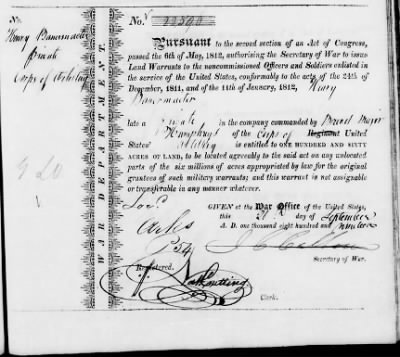 Henry Banemacher
Private
Corps of Artillery
WAR DEPARTMENT.
No.
Pursuant to the second section of an Act of Congress,
passed the 6th of May, 1812, authorising the Secretary of War to issue
Land Warrants to the noncommissioned Officers and Soldiers enlisted in
the service of the United States, conformably to the acts of the 24th of
December, 1811, and of the 11th of January, 1812, Henry
late a Private in the company commanded by
of the Corps of Regiment United
States' Artillery is entitled to ONE HUNDRED AND SIXTY
ACRES OF LAND, to be located agreeably to the said act on any unlocated
parts of the six millions of acres appropriated by law for the original
grantees of such military warrants; and this warrant is not assignable
or transferable in any manner whatever.
GIVEN at the War Office of the United States,
this day of September
A. D. one thousand eight hundred and nineteen
J C Calhoun
Secretary of War.
Registered.
Clerk.